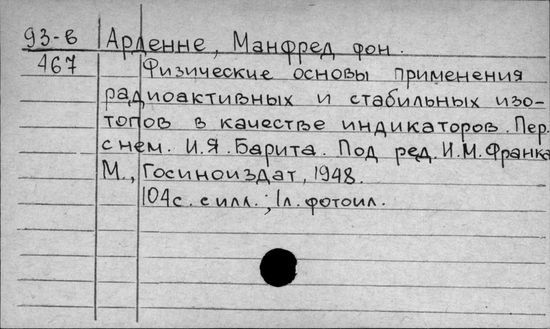 93-в Арденне, Манфред фон.
467 Физические основы применения
радиоактивных и стабильных изо-
топов в качестве индикаторов. Пер.
с нем. И.Я. Барита. Под ред. И.М. Франка
М., Госиноиздат, 1948.
104с. с илл.; 1л. фотоил.